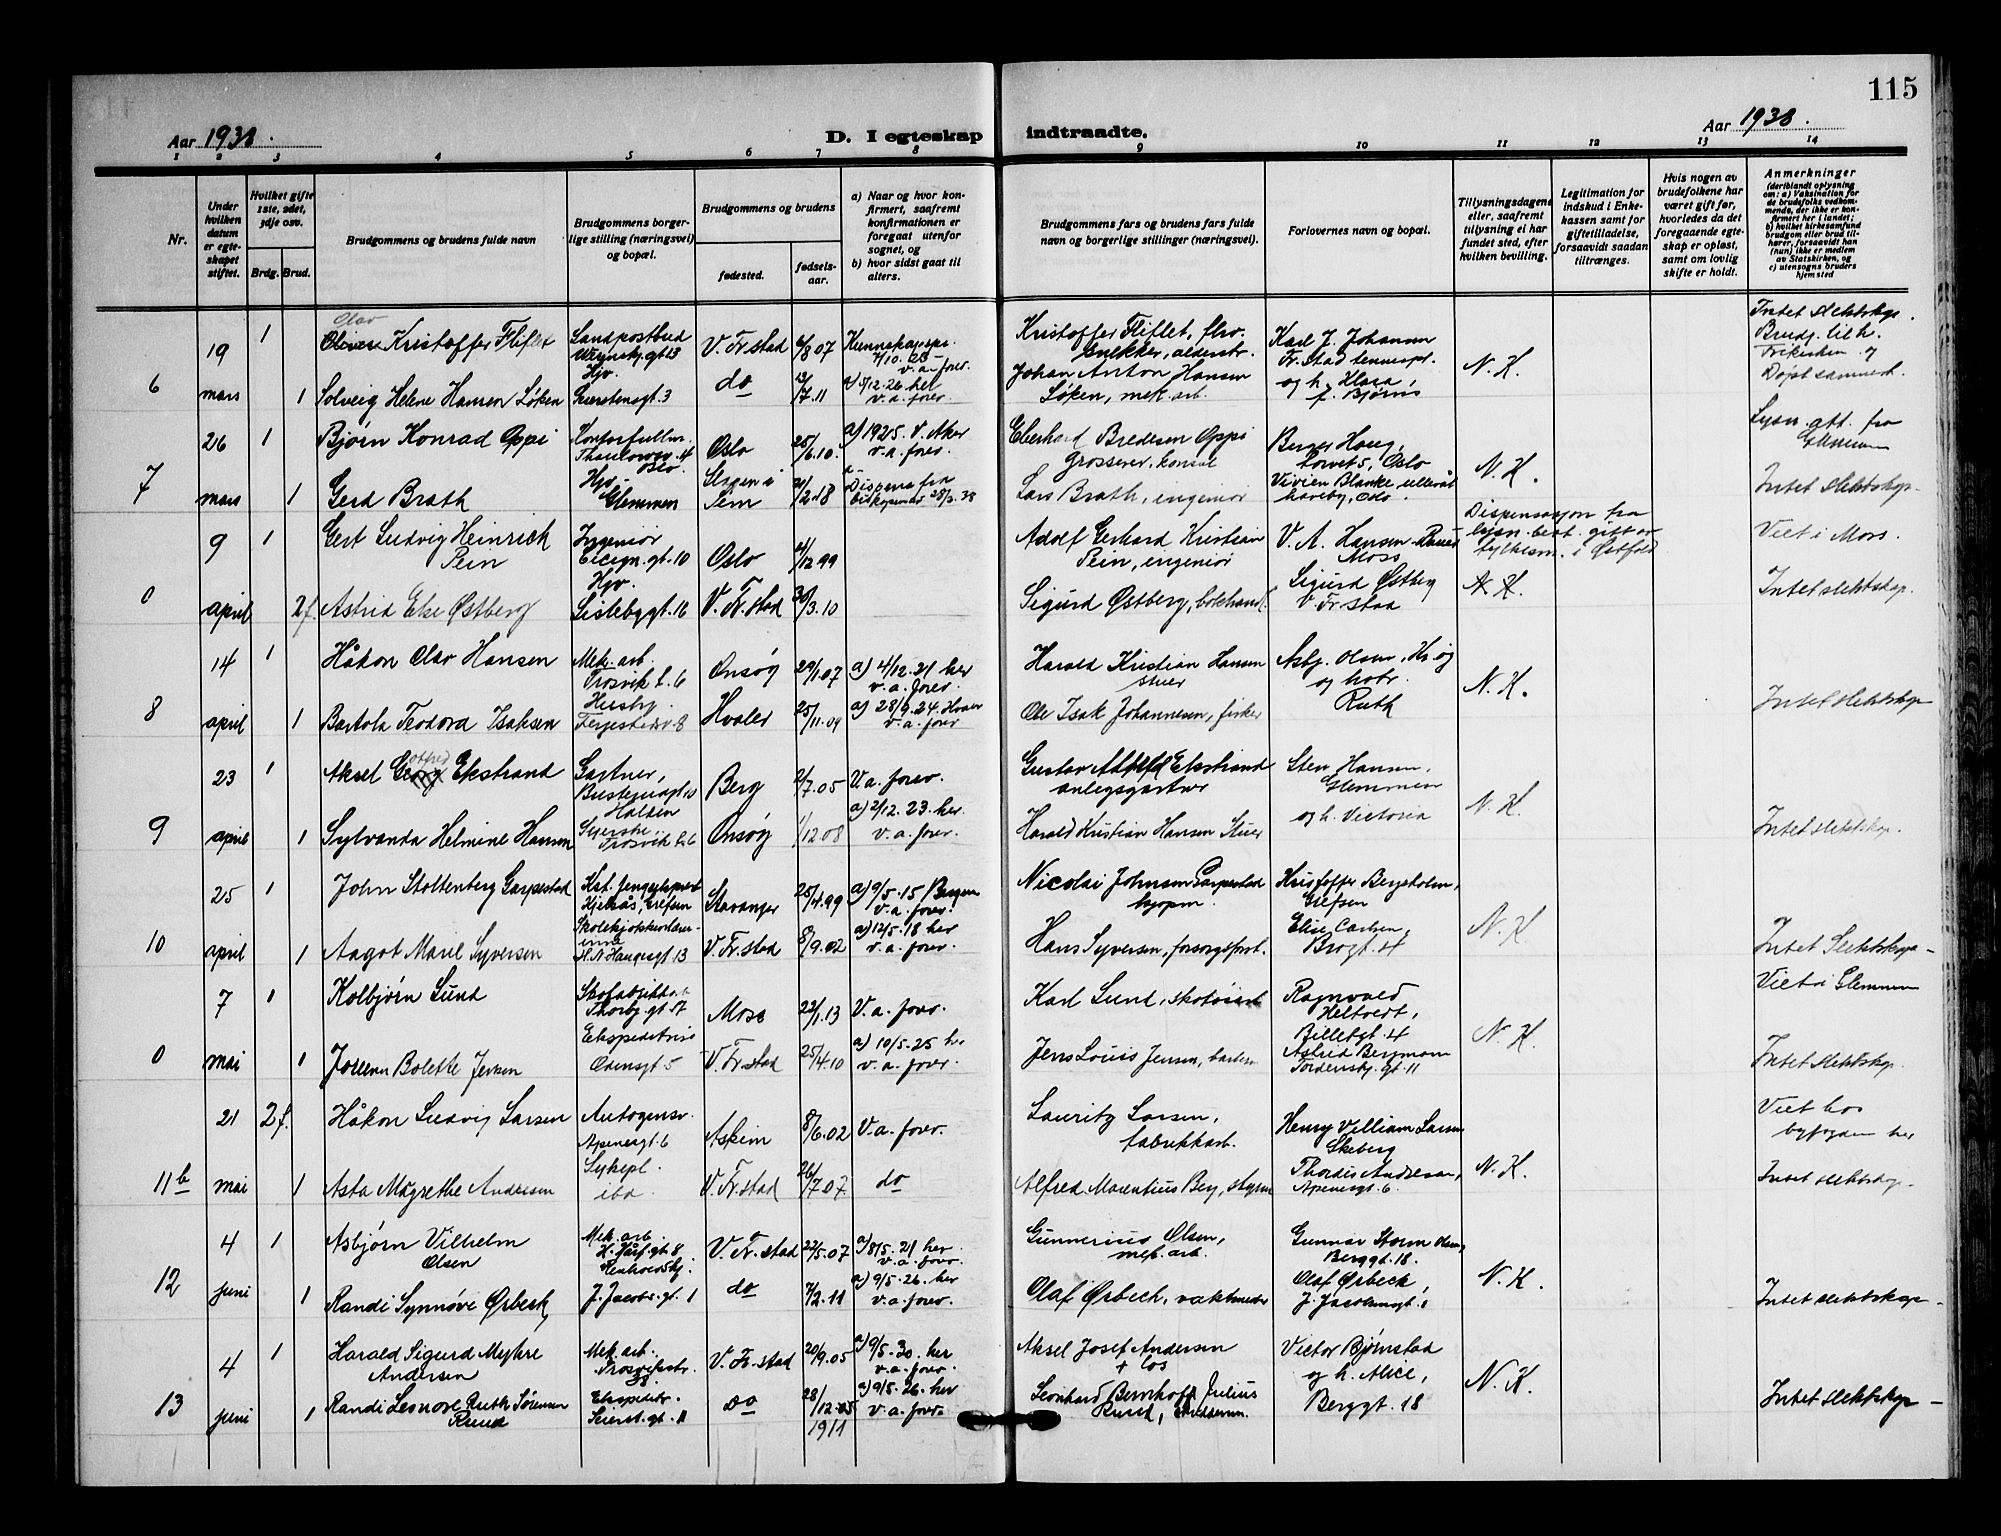 115
Aar 1938.
D. I egteskap indtraadte.
Aar 1938.
1 2 3 4 5 6 7 8 9 10 11 12 13 14
Nr.
Under hvilken datum er egteskapet stiftet.
Hvilket gifte 1ste, 2det, 3dje osv.
Brdg. Brud.
Brudgommens og brudens fulde navn
Brudgommens borgerlige stilling (næringsvei) og bopæl.
Brudgommens og brudens
fødested.
fødselsaar.
a) Naar og hvor konfirmert, saafremt konfirmationen er foregaat utenfor sognet, og
b) hvor sidst gaat til alters.
Brudgommens fars og brudens fars fulde navn og borgerlige stillinger (næringsvei).
Forlovernes navn og bopæl.
Tillysningsdagene eller, saafremt tillysning ei har fundet sted, efter hvilken bevilling.
Legitimation for indskud i Enkekassen samt for giftetilladelse, forsaavidt saadan tiltrænges.
Hvis nogen av brudefolkene har været gift før, hvorledes da det foregaaende egteskap er opløst, samt om lovlig skifte er holdt.
Anmerkninger
(deriblandt oplysning om: a) Vaksination for de brudefolks vedkommende, der ikke er konfirmert her i landet; b) hvilket kirkesamfund brudgom eller brud tilhører, forsaavidt han (hun) ikke er medlem av Statskirken, og c) utensogns bruders hjemsted
6
19 mars
1
Olav
Kristoffer Fliflet
Landpostbud
Hjv.
V. Fr.stad
6/8 07
v. a. forer.
Kristoffer Fliflet, fhv. snekker, alderstr.
Karl J. Johansen
Fr.stad
N. K.
Intet slektskap.
Brudg. tilh.
Frikirken og
Døpt
1
Solveig Helene Hansen Løken
Seierstensgt. 3
do
13/7.11
a) 5/12.26 her
v. a. forer.
Johan Anton Hansen
Løken, mek. arb.
og h. Klara,
f. Bjørns
7
26 mars
1
Bjørn Konrad Oppi
Kontorfullm.
Oslo.
Oslo
25/6.10.
a) 1925. V. Aker
v. a. forer.
Eberhard Bredesen Oppi
Grosserer, konsul
Berger Haug,
Torvet 5, Oslo
N. K.
Lysn. att. fra
Glemmen
1
Gerd Brath
Hjv.
Glemmen
Slagen i
Sem
Dispens fra
biskopen 28/3.38
Lars Brath, ingeniør
Vivien Blanke, Ullevål
haveby, Oslo.
Intet slektskap.
0
9 april
1
Gert Ludvig Heinrich
Pein
Ingeniør
Cicign. gt. 10
Oslo
4/12 99
Adolf Gerhard Kristian
Pein, ingeniør
V. A. Hansen
Moss
Dispensasjon fra
lysn. best. gitt av
fylkesm. i Østfold
Viet i Moss.
2 f.
Astrid Else Østberg
Hjv.
Listebygt. 16
V. Fr.stad
30/3.10
Sigurd Østberg, bokhandl.
Sigurd Østberg
V. Fr.stad
N. K.
Intet slektskap.
8
14 april
1
Håkon Olav Hansen
Mek. arb.
Trosvik L. 6
Onsøy
29/1.07
a) 4/12.21 her
v. a. forer.
Harald Kristian Hansen
stuer
Asbj. Olsen, Kr.
og hstr.
Ruth
N. K.
1
Bertola Teodora Isaksen
Husby.
Fergestedsv. 8
Hvaler
25/11.09
a) 28/9.24. Hvaler
v. a. forer
Ole Isak Johannesen, fisker
Intet slektskap
9
23 april
1
otfred
Aksel Georg Ekstrand
Gartner,
Halden
Berg
2/7.05
V. a. forer.
Gustav Adolf Ekstrand
anlegsgartner
Sten Hansen,
Glemmen
N. K.
1
Sylvanda Helmine Hansen
Trosvik L. 6
Onsøy
1/12 08
a) 2/12.23. her
v. a. forer.
Harald Kristian Hansen Stuer
og h. Victoria
Intet slektskap.
10
25 april
1
John Stoltenberg Garpestad
Kst. fengselsprest
Kjelsås, Grefsen
Stavanger
25/4.99
a) 9/5.15 Bergen
v. a. forer.
Nicolai Johnsen Garpestad
kjøpm.
Kristoffer Bergholm,
Grefsen
N. K.
1
Aagot Marie Syversen
H. N. Haugesgt. 13
V. Fr.stad
8/9.02
a) 12/5.18 her
v. a. forer.
Hans Syversen, forsorgsforst.
Elise Carlsen,
Brogt. 4
Intet Slektskap
0
7 mai
1
Kolbjørn Lund
Skofabrikkarb.
Thorby. gt. 17
Moss
22/1.13
V. a. forer.
Karl Lund, skotøiarb
Ragnvald
Heltvedt,
Billetgt. 4
N. K.
Viet i Glemmen
1
Jorunn Bolette Jensen
Ekspeditrise
Odensgt 5
V. Fr.stad
25/4.10
a) 10/5.25 her
v. a. forer.
Jens Louis Jensen, barberm
Astrid Bergmann
Tordenskj. gt. 11
Intet slektskap.
11 b
21 mai
2 f.
Håkon Ludvig Larsen
Autogensv.
Apenesgt. 6
Askim
8/6.02
V. a. forer.
Lauritz Larsen,
fabrikkarb.
Henry Villiam Larsen
Skeberg
N. K.
Viet hos
byfogden her
1
Asta Magrethe Andresen
Sykepl.
ibd.
V. Fr.stad
26/7.07.
do
Alfred Marentius Berg, styrm
Thordis Andresen,
Apenesgt. 6.
Intet slektskap.
12
4 juni
1
Asbjørn Vilhelm
Olsen
Mek. arb.
V. Fr. stad
22/5.07
a) 8/5.21 her
v. a. forer.
Gunnerius Olsen,
mek. arb.
Gunnar Storm Olsen,
Berggt. 18.
N. K.
1
Randi Synnøve Ørbeck
J. Jacobs. gt. 1
do
7/2.11
a) 9/5.26. her
v. a. forer.
Olaf Ørbeck, vaktmester
Olaf Ørbeck,
J. Jacobsensgt. 1
Intet slektskap
13
4 juni
1
Harald Sigurd Myhre
Andersen
Mek. arb.
V. Fr. stad
20/9.05
a) 9/5.30. her
v. a. forer.
Aksel Josef Andersen
+ los
Victor Bjørnstad
og h. Alice,
Berggt. 18
N. K.
1
Randi Leonore Ruth Sørensen
Ruud
Ekspeditr.
Seierst. gt. 11
do
28/12.05
1911
a) 9/5.26. her
v. a. forer.
Leonhard Bernhoft Julius
Ruud,
Intet slektskap